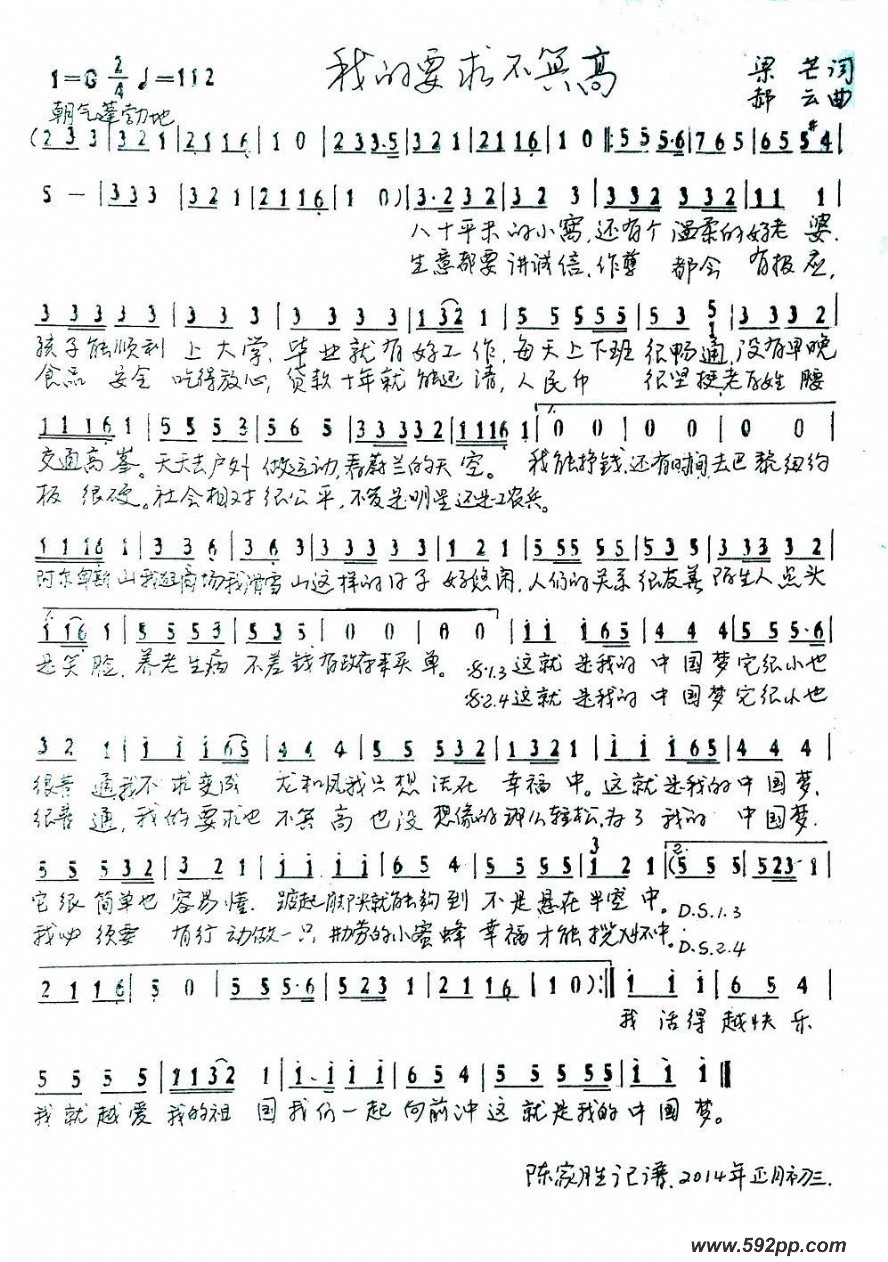 我的要求不算高
1=G 2/4 ♩=112
梁芒词
朝气蓬勃地
郝云曲
(2 3 3 | 3 2 1 | 2 1 1 6 | 1 0 | 2 3 3·5 | 3 2 1 | 2 1 1 6 | 1 0 |: 5 5 5 5·6 | 7 6 5 | 6 5 5 #4 |
5 — | 3 3 3 | 3 2 1 | 2 1 1 6 | 1 0 ) | 3·2 3 2 | 3 2 3 | 3 3 2 3 3 2 | 1 1 1 |
八十平米的小窝,还有个温柔的好老婆.
生意都要讲诚信,作孽都会有报应,
3 3 3 3 3 | 3 3 3 | 3 3 3 3 3 | 1 3 2 1 | 5 5 5 5 5 5 | 5 3 5 1 | 3 3 3 2 |
孩子能顺利上大学,毕业就有好工作,每天上下班很畅通,没有早晚
食品安全吃得放心,贷款十年就能还清,人民币很坚挺老百姓腰
1 1 1 6 1 | 5 5 5 3 | 5 6 5 | 3 3 3 3 2 | 1 1 1 6 1 | 0 0 | 0 0 | 0 0 |
交通高峯。天天去户外做运动,看蔚兰的天空。我能挣钱,还有时间,去巴黎纽约
板很硬。社会相对很公平,不管是明星还是工农兵。
1 1 1 6 1 | 3 3 6 | 3 6 3 | 3 3 3 3 3 3 | 1 2 1 | 5 5 5 5 5 | 5 3 5 | 3 3 3 3 2 |
阿尔卑斯山我逛商场我滑雪山这样的日子好悠闲,人们的关系很友善陌生人点头
1 1 6 1 | 5 5 5 5 3 | 5 3 5 | 0 0 | 0 0 | i i i 6 5 | 4 4 4 | 5 5 5 5·6 |
是笑脸,养老生病不差钱有政府来买单。𝄋1.3这就是我的中国梦它很小也
𝄋2.4这就是我的中国梦它很小也
3 2 1 | i i i 6 5 | 4 4 4 | 5 5 5 3 2 | 1 3 2 1 | i i i 6 5 | 4 4 4 |
很普通我不求变成龙和凤我只想活在幸福中。这就是我的中国梦.
很普通,我的要求也不算高也没想像的那么轻松,为了我的中国梦.
5 5 5 3 2 | 3 2 1 | i i i i i | 6 5 4 | 5 5 5 5 | i 2 1 | 2. (5 5 5 | 5 2 3 · 1 |
它很简单也容易懂.踮起脚尖就能够到不是悬在半空中。D.S.1.3
我必须要有行动做一只勤劳的小蜜蜂幸福才能揽怀中。D.S.2.4
2 1 1 6 | 5 0 | 5 5 5 5·6 | 5 2 3 1 | 2 1 1 6 | 1 0 ) :| i i i | 6 5 4 |
我活得越快乐
5 5 5 5 | 1 1 3 2 1 | i·i i i | 6 5 4 | 5 5 5 5 5 | i i i ‖
我就越爱我的祖国我们一起向前冲这就是我的中国梦。
陈家胜记谱.2014年正月初三.
www.592pp.com